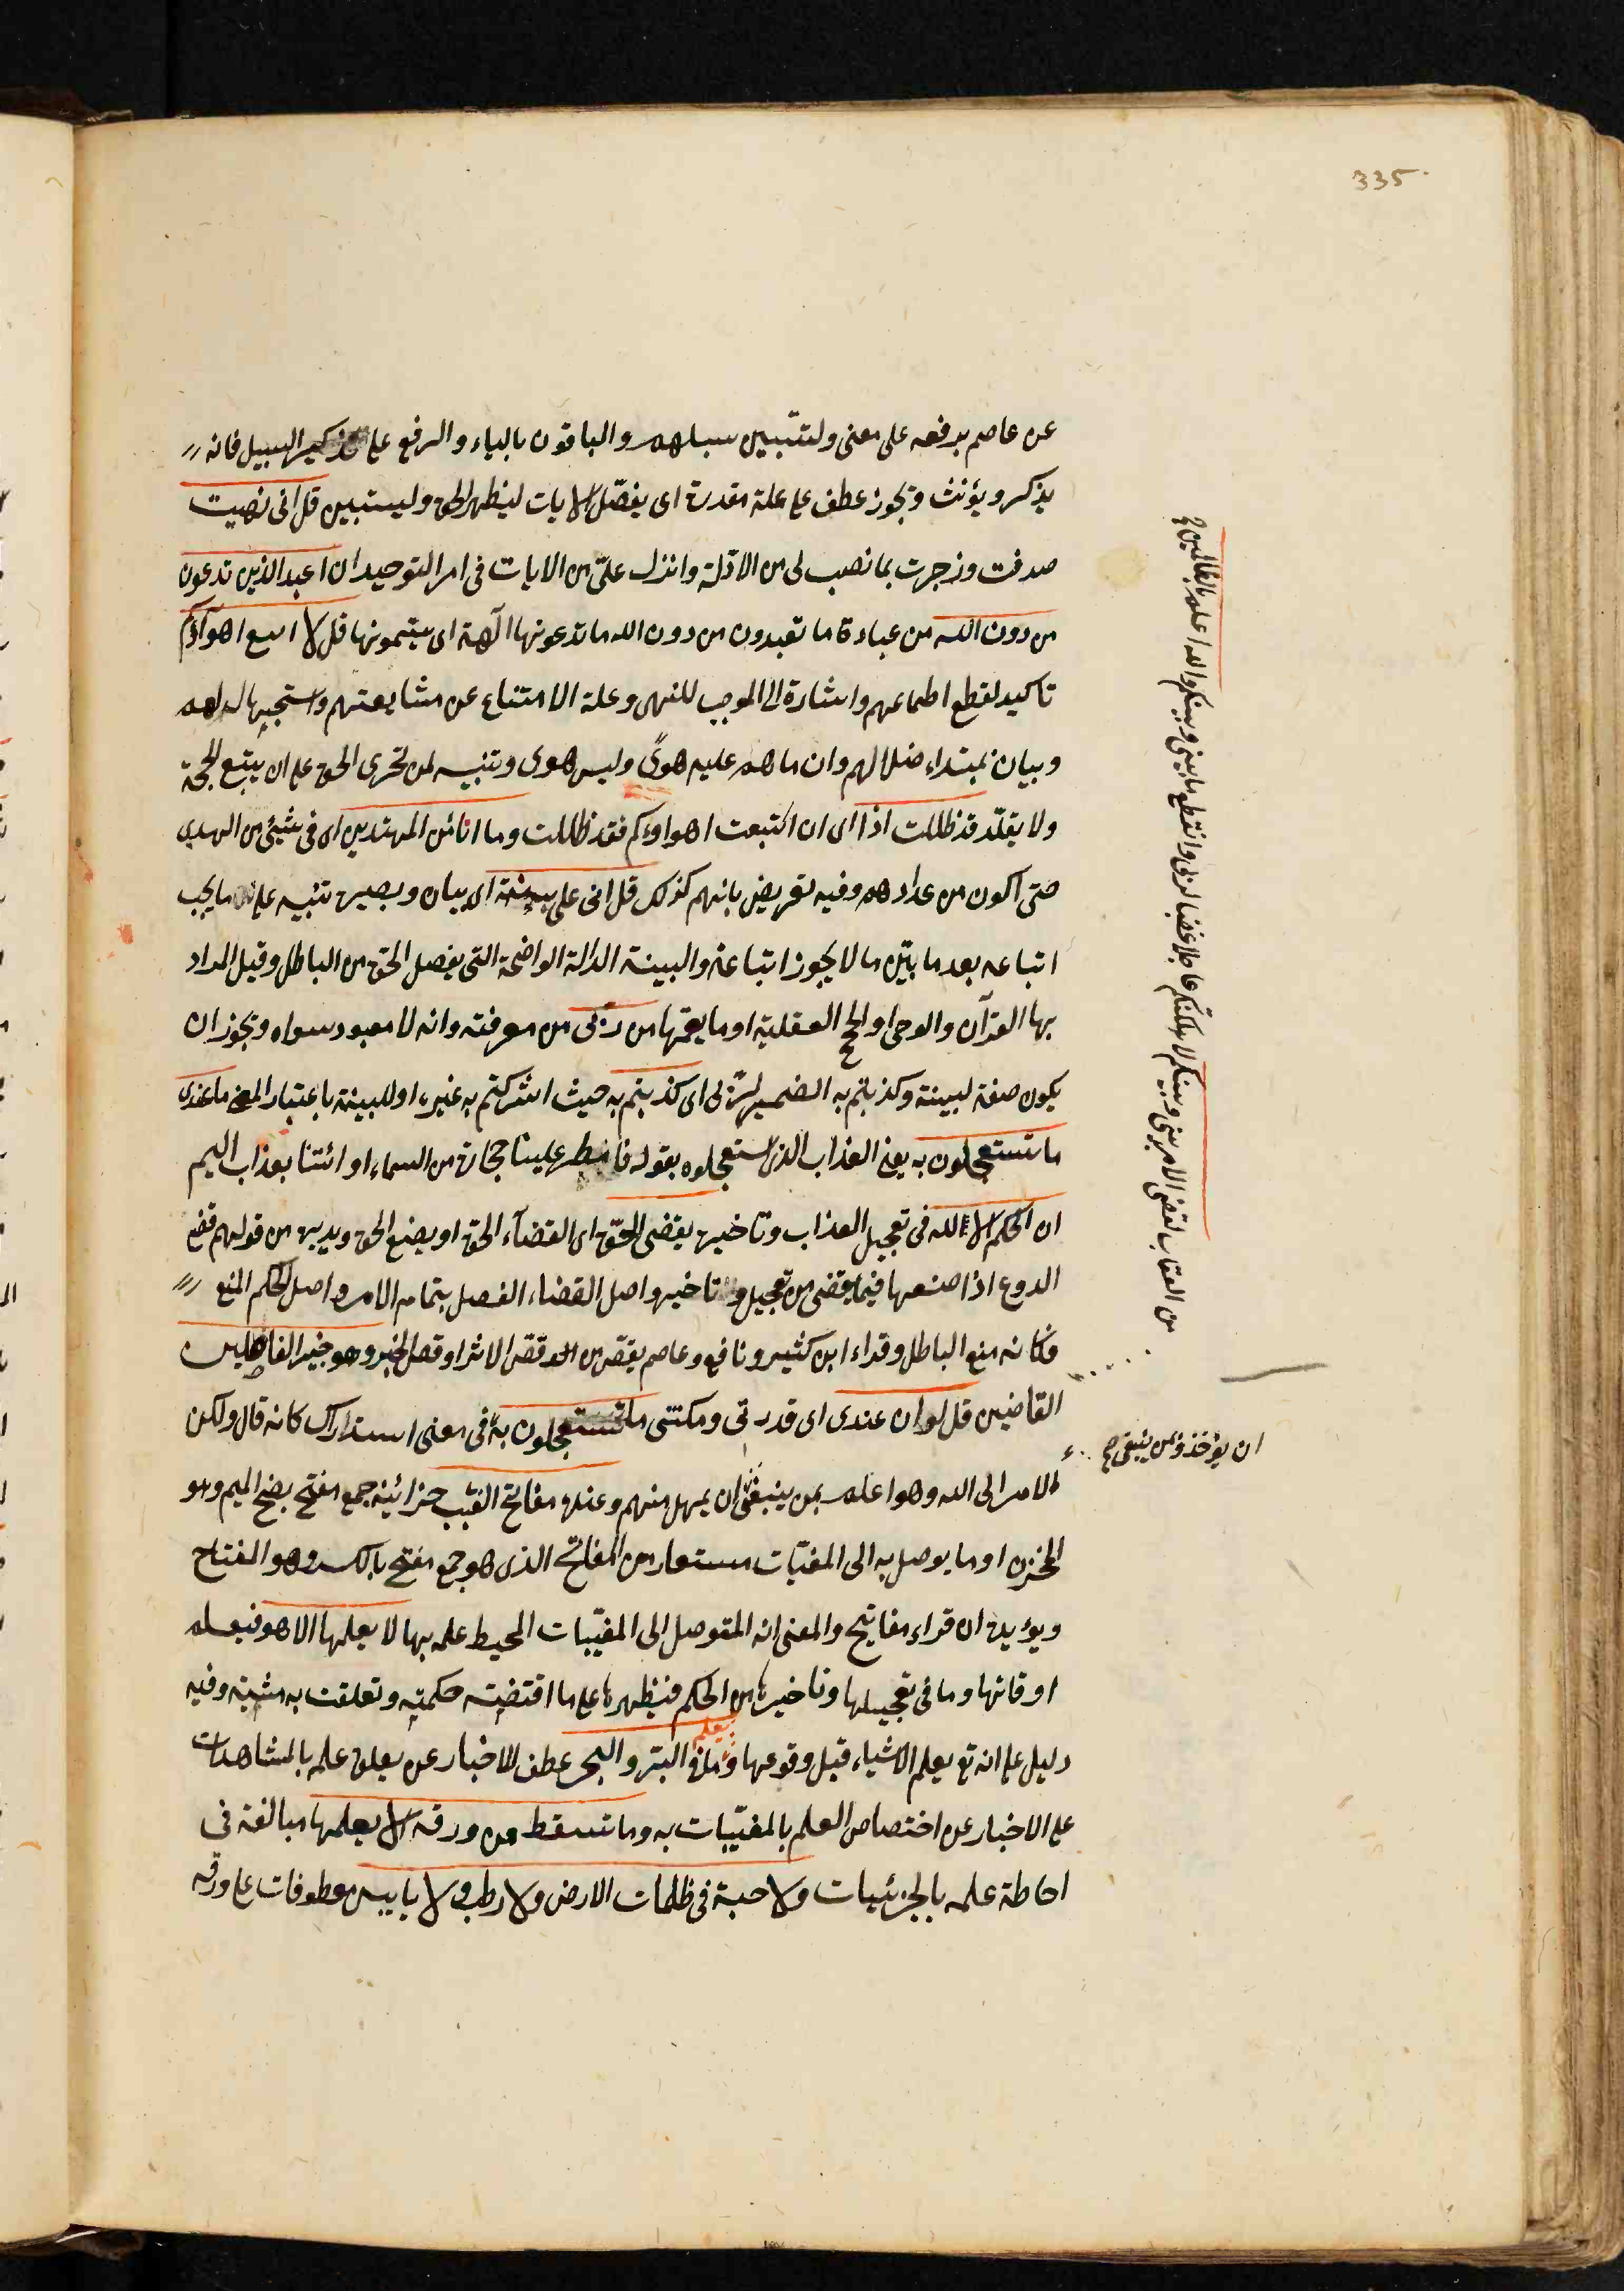 335
عن عاصم برفعه على معنى ولتتبين سبيلهم والباقون بالياء والرفع على تذكير السبيل فانه
يذكر ويؤنث ويجوز عطف على علة مقدرة اى يفصّل الايات ليظهر الحق وليستبين قل انى نهيت
صرفت وزجرت بما نصب لى من الادّلة وانزل علىّ من الايات فى امر التوحيد ان اعبد الذين تدعون
من دون الله من عبادة ما تعبدون من دون الله ما تدعونها الٓهة اى يتمونها قل لا اتبع اهواؤكم
تاكيد لقطع اطماعهم واشارة الى الموجب للنهى وعلة الامتناع عن مشايعتهم واستجهالهم
وبيان بمبتداء ضلالهم وان ما هم عليه هوىً وليس هدى وتنبيه لمن تحرى الحق على ان يتبع الحجة
ولا يقلّد قد ظللت اذا اى ان اتبعت اهواؤكم فقد ظللت وما انا من المهتدين اى فى شيئ من الهدى
حتى اكون من عدادهم وفيه تعريض بانهم كذلك قل انى على بينة اى بيان وبصيرة تنبيه على ما يجب
اتباعه بعد ما بيّن ما لا يجوز اتباعه والبينة الدالة الواضحة التى يفصل الحق من الباطل وقيل المراد
بها القرآن والوحى او الحجج العقلية او ما يعمّها من ربى من معرفته وانه لا معبود سواه ويجوز ان
يكون صفة لبينة وكذبتم به الضمير لربّى اى كذبتم به حيث اشركتم به غيره او للبينة باعتبار المعنى ما عندى
ما تستعجلون به يعنى العذاب الذى استعجلوه بقوله فامطر علينا حجارة من السماء او ائتنا بعذاب اليم
ان الحكم الا لله فى تعجيل العذاب وتاخيره يقضى الحقّ اى القضآء الحق او يصنع الحق ويدبره من قولهم قضى
الدرع اذا صنعها فيما يقضى من تعجيل وتاخير واصل القضاء الفصل بتمام الامر واصل الحكم المنع
فكانه منع الباطل وقراء ابن كثير ونافع وعاصم يقص من قص الاثر او قص الخبر وهو خير الفاصلين
القاضين قل لو ان عندى اى قدرتى ومكنتى ما تستعجلون به فى معنى استدراك كانه قال ولكن
الامر الى الله وهو اعلم بمن ينبغى ان يمهل منهم وعنده مفاتح الغيب خزائنه جمع مفتح بفتح الميم وهو
المخزن او ما يوصل به الى المغيّبات مستعار من المفاتح الذى هو جمع مفتح بالكسر وهو المفتاح
ويؤيده ان قراء مفاتيح والمعنى انه المتوصل الى المغيّبات المحيط علمه بها لا يعلمها الا هو فيعلم
اوقاتها وما فى تعجيلها وتاخيرها من الحكم فيظهرها على ما اقتضته حكمته وتعلقت به مشيته وفيه
دليل على انه تع يعلم الاشياء قبل وقوعها ويعلم ما فى البرّ والبحر عطف للاخبار عن تعلق علمه بالمشاهدات
على الاخبار عن اختصاص العلم بالمغيّبات به وما تسقط من ورقة الا يعلمها مبالغة فى
احاطة علمه بالجزئيات ولا حبة فى ظلمات الارض ولا رطب ولا يابس معطوفات على ورقة
من العقاب لقضى الامر بينى وبينكم لاهلكتكم عاجلا غضبا لربى وانقطع ما بينى وبينكم والله اعلم بالظالمين
ان يؤخذ وبمن ينبغى صح